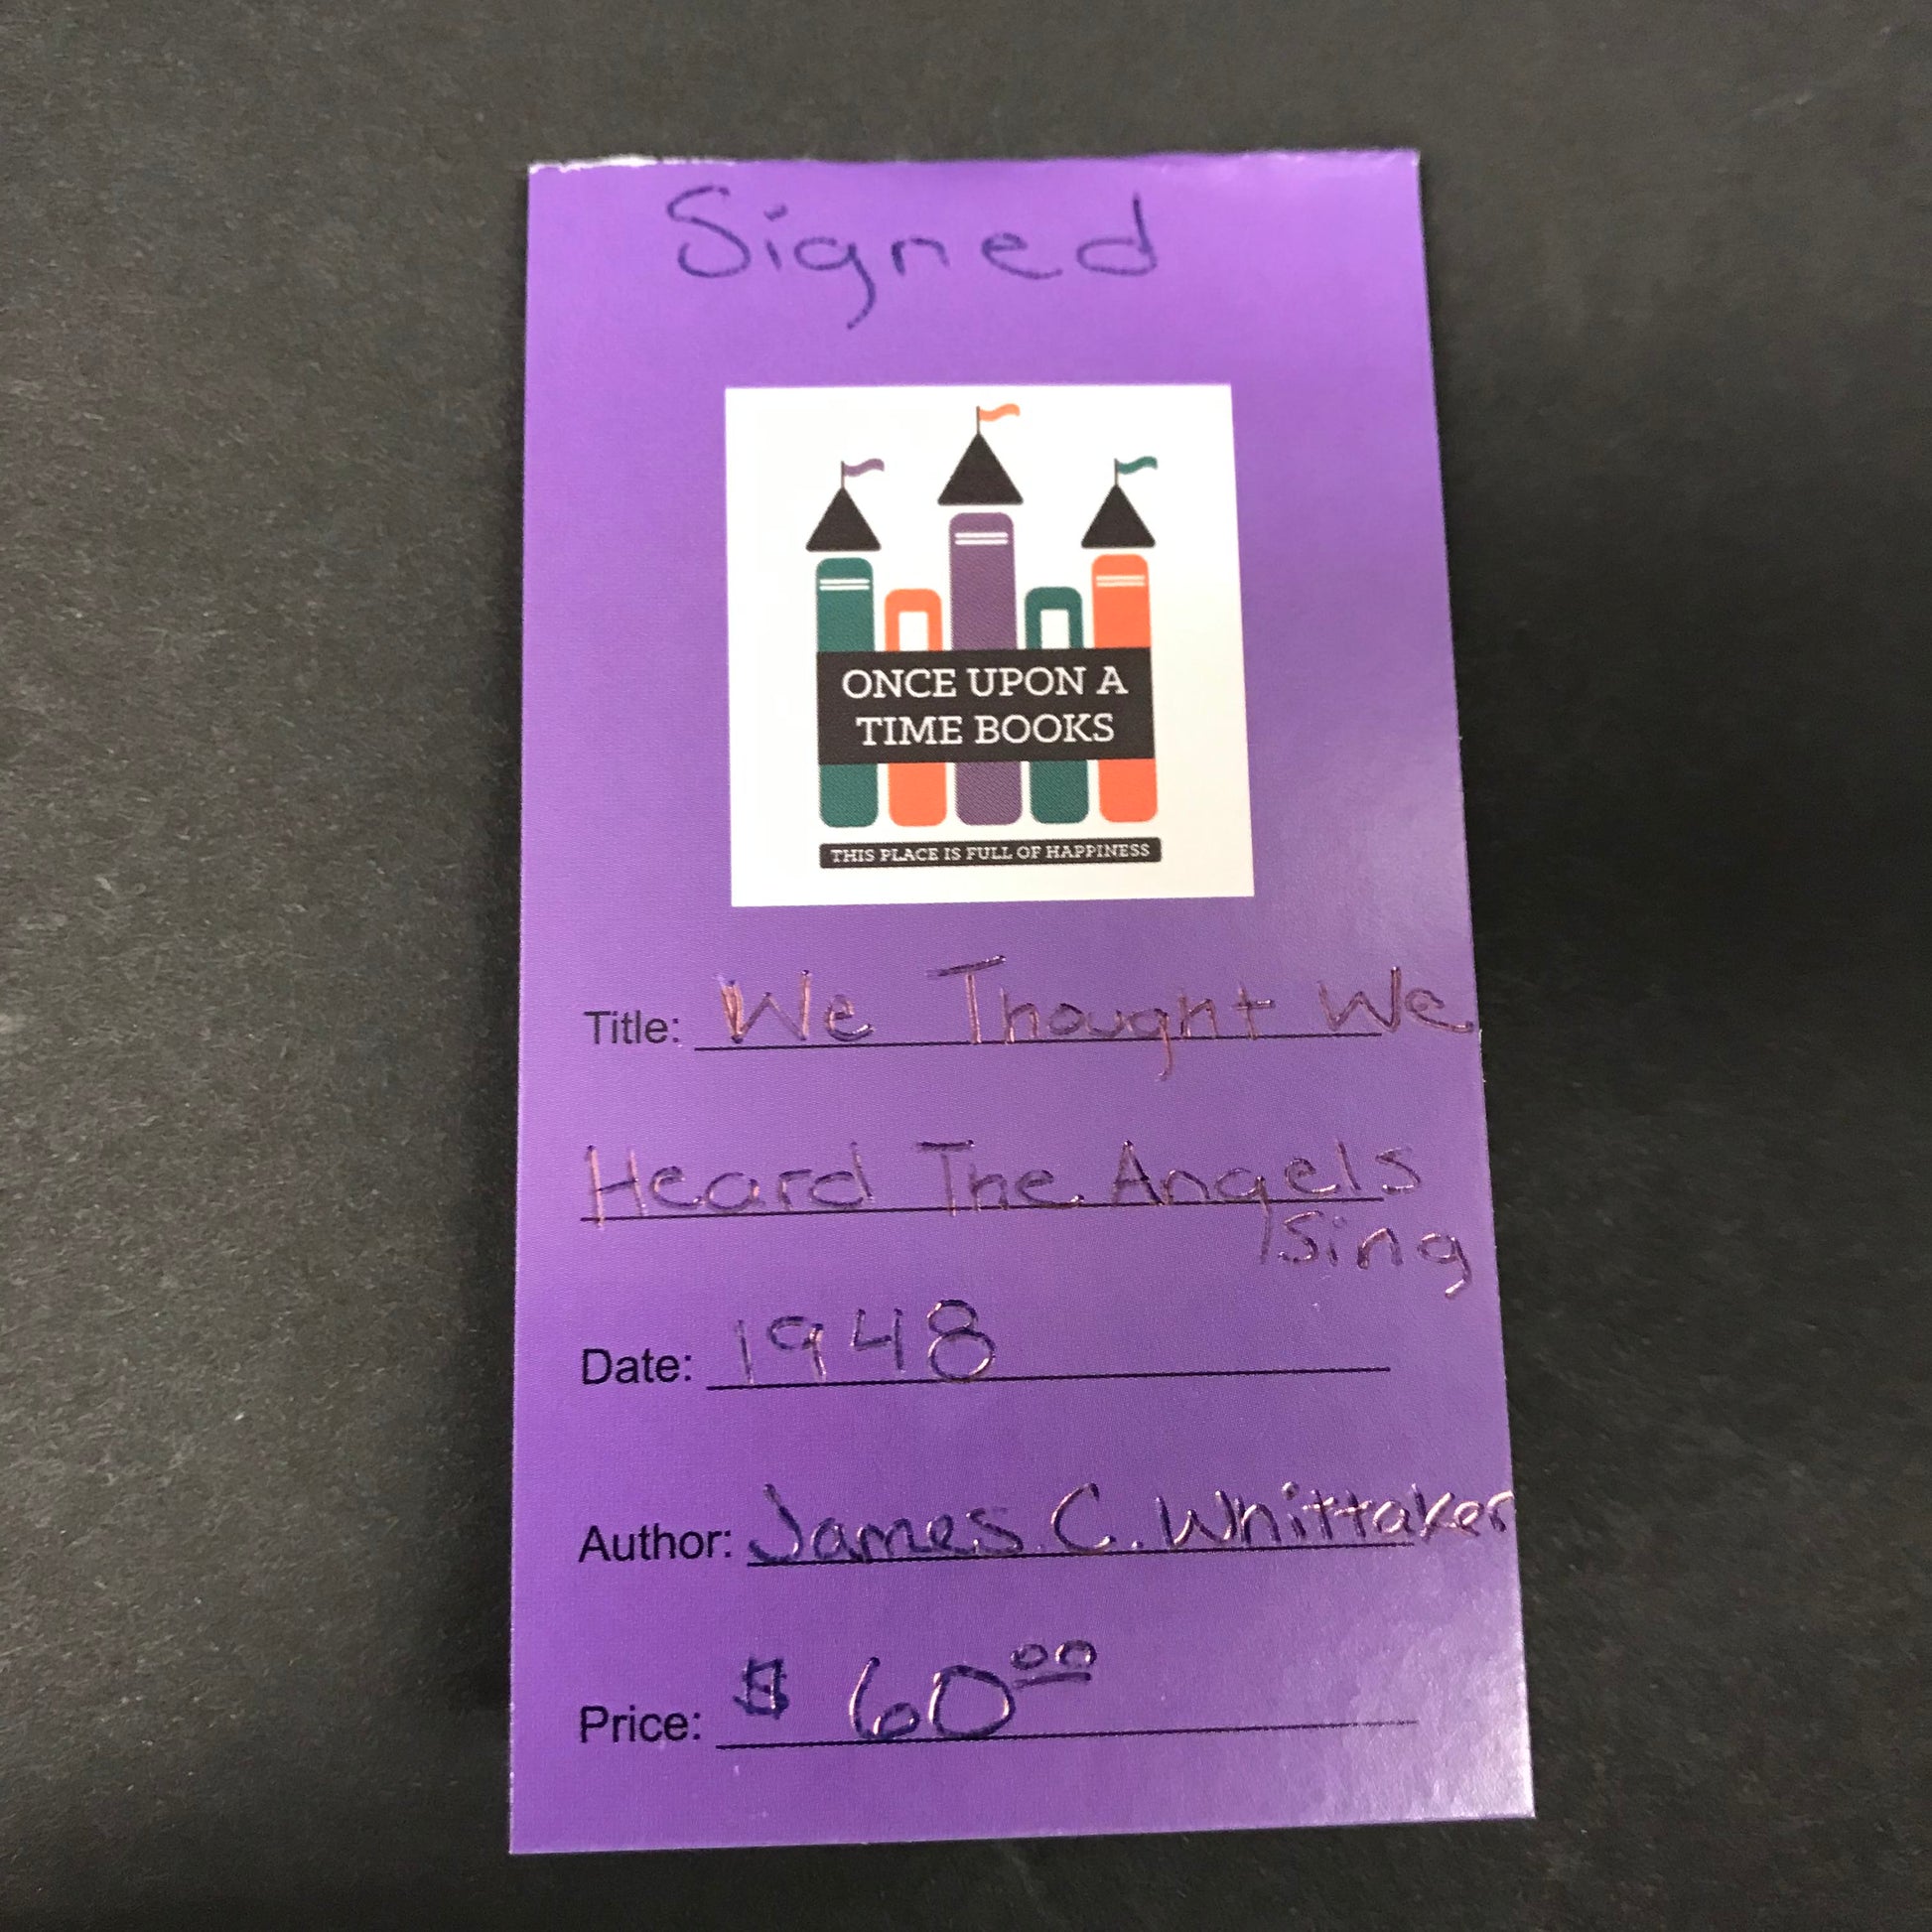 Signed
ONCE UPON A
TIME BOOKS
THIS PLACE IS FULL OF HAPPINESS
Title: We Thought We
Heard The Angels
Sing
Date: 1948
Author: James C. Whittaker
Price: $ 60.00